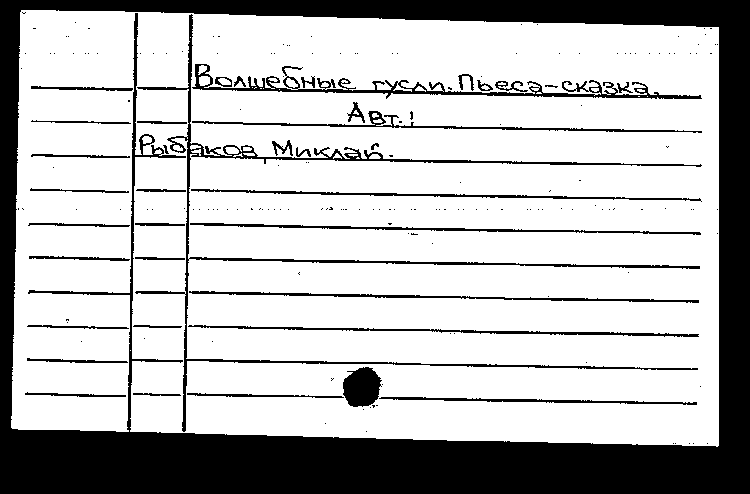 Волшебные гусли. Пьеса-сказка.
Авт.:
Рыбаков, Миклай.